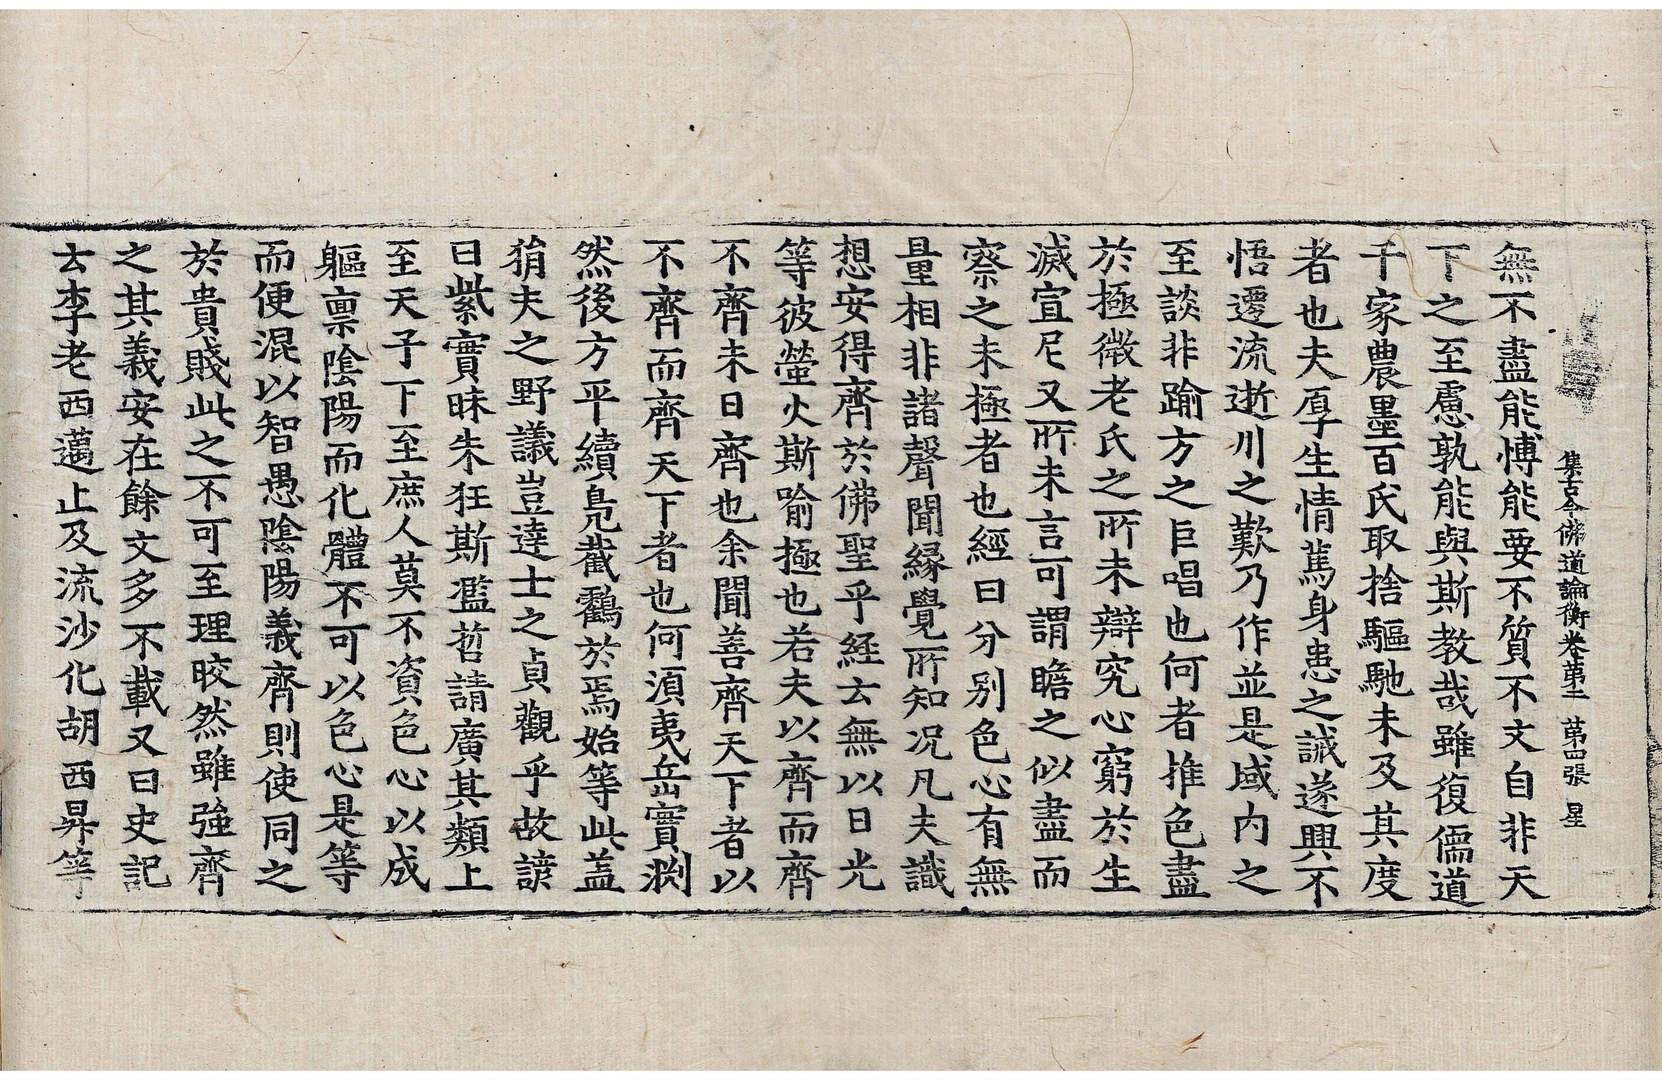 集古今佛道論衡卷第二 第四張 星
無不盡能愽能要不質不文自非天
下之至慮孰能與斯教哉雖復儒道
千家農墨百氏取捨驅馳未及其度
者也夫厚生情篤身患之誡遂興不
悟遷流逝川之歎乃作並是域内之
至談非踰方之巨唱也何者推色盡
於極微老氏之所未辯究心窮於生
滅宣尼又所未言可謂瞻之似盡而
察之未極者也經曰分别色心有無
量相非諸聲聞縁覺所知况凡夫識
想安得齊於佛聖乎経云無以日光
等彼螢火斯喻極也若夫以齊而齊
不齊未曰齊也余聞善齊天下者以
不齊而齊天下者也何湏夷岳實渕
然後方平續鳧截鸖於焉始等此盖
猏夫之野議豈達士之貞觀乎故諺
曰紫實昧朱狂斯濫哲請廣其類上
至天子下至庶人莫不資色心以成
軀禀陰陽而化體不可以色心是等
而便混以智愚陰陽義齊則使同之
於貴賤此之不可至理晈然雖強齊
之其義安在餘文多不載又曰史記
云李老西邁止及流沙化胡西昇等